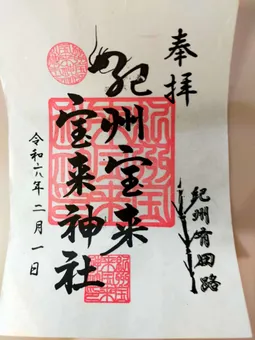 奉拝
紀州宝来
宝来神社
紀州有田路
令和六年二月一日